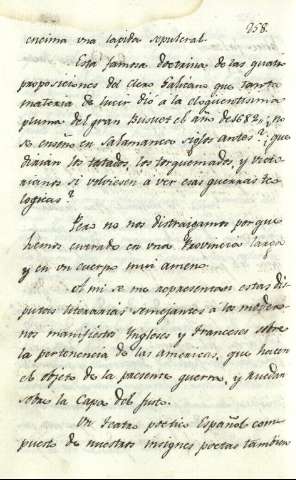 258.
encima vna lapida sepulcral.
Esta famosa doctrina de las quatro
proposiciones del Clero Galicano que tanta
materia de lucir dio à la eloqüentisima
pluma del gran Busuet el año de 1682, ¿no
se enseño en Salamanca siglos antes? ¿que
dirian los tostados, los torquemados, y victo
rianos si volviesen à ver esas guerras teo
logicas?
Pero no nos distraigamos porque
hemos entrado en vna Provincia larga
y en vn cuerpo mui ameno.
A mi se me representan estas dis
putas literarias semejantes à los moder
nos manifiestos Ingleses y Franceses sobre
la pertenencia de las americas, que hacen
el objeto de la presente guerra, y ruedan
sobre la Capa del Justo.
Vn teatro poetico Español com
puesto de nuestros insignes poetas tambien